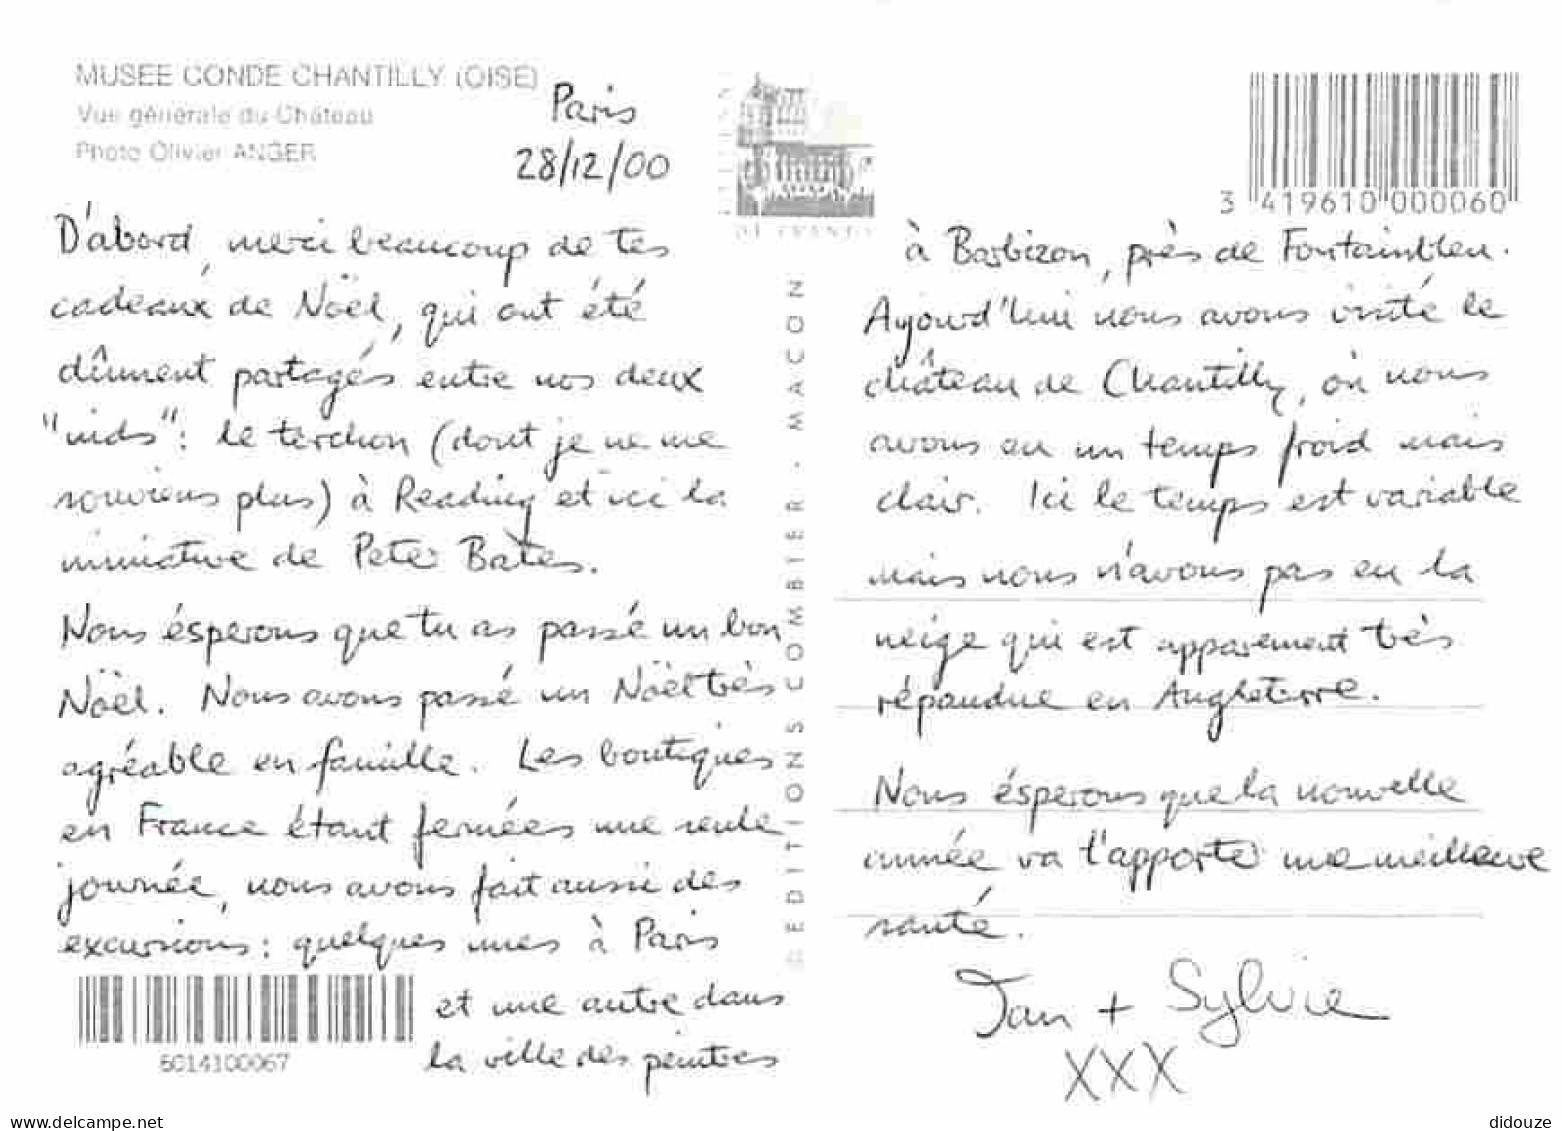 MUSEE CONDE CHANTILLY (OISE)
Vue générale du Château
Photo Olivier ANGER
Paris
28/12/00
D'abord, merci beaucoup de tes
cadeaux de Nöel, qui ont été
dûment partagés entre nos deux
"nids": le torchon (dont je ne me
souviens plus) à Reading et ici la
miniature de Peter Bates.
Nous ésperons que tu as passé un bon
Nöel. Nous avons passé un Nöel très
agréable en famille. Les boutiques
en France étant fermées une seule
journée, nous avons fait aussi des
excursions: quelques unes à Paris
et une autre dans
la ville des peintres
5014100067
EDITIONS COMBIER - MACON
DE FRANCE
3 419610 000060
à Barbizon, près de Fontainbleu.
Aujourd'hui nous avons visité le
château de Chantilly, où nous
avons eu un temps froid mais
clair. Ici le temps est variable
mais nous n'avons pas eu la
neige qui est apparement très
répandue en Angleterre.
Nous ésperons que la nouvelle
année va t'apporter une meilleure
santé.
Ian + Sylvie
XXX
www.delcampe.net
didouze